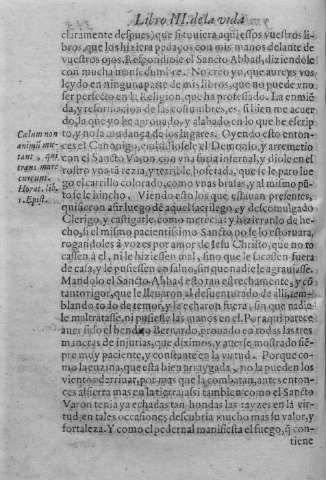 Libro III. de la vida
claramente despues, que si tuuiera aqui essos vuestros li-
bros, que los hiziera pedaços con mis manos delante de
vuestros ojos. Respondiole el Sancto Abbad, diziendole
con mucha mansedumbre. No creo yo, que aureys vos
leydo en ninguna parte de mis libros, que no puede vno
ser perfecto en la Religion, que ha professado. La enmiẽ
da, y reformacion de las costumbres, es, si bien me acuer
do, la que yo he aprouado, y alabado en lo que he escrip-
to, y no la mudança de los lugares. Oyendo esto enton-
ces el Canonigo, embistiosele el Demonio, y arremetio
con el Sancto Varon con vna furia infernal, y diole en el
rostro vna tã rezia, y terrible bofetada, que se le paro lue
go el carrillo colorado, como vnas brasas, y al mismo pũ-
to se le hincho. Viendo esto los que estauan presentes,
quisieron asir luego de aquel sacrilego, y descomulgado
Clerigo, y castigarle, como merecia; y hizieranlo de he-
cho, si el mismo pacientissimo Sancto no se lo estoruara,
rogandoles a vozes por amor de Iesu Christo, que no to
cassen a el, ni le hiziessen mal, sino que le sacassen fuera
de casa, y le pusiessen en saluo, sin que nadie le agrauiasse.
Mandolo el Sancto Abbad esto tan estrechamente, y cõ
tanto rigor, que le lleuaron al desuenturado de alli, tem-
blando todo de temor, y le echaron fuera, sin que nadie
le maltratasse, ni pusiesse las manos en el. Por aqui parece
auer sido el bendito Bernardo, prouado en todas las tres
maneras de injurias, que diximos, y auerse mostrado siẽ-
pre muy paciente, y constante en la virtud. Porque co-
mo la enzina, que esta bien arraygada, no la pueden los
vientos derriuar, por mas que la combatan, antes enton-
ces assierra mas en la tierra: assi tambien como el Sancto
Varon tenia ya echadas tan hondas las rayzes en la vir-
tud, en tales occasiones descubria mucho mas su valor, y
fortaleza. Y como el pedernal manifiesta el fuego, q̃ con
tiene
Cœlum non
animũ mu-
tant, qui
trans mare
currunt.
Horat. lib.
1. Epist.